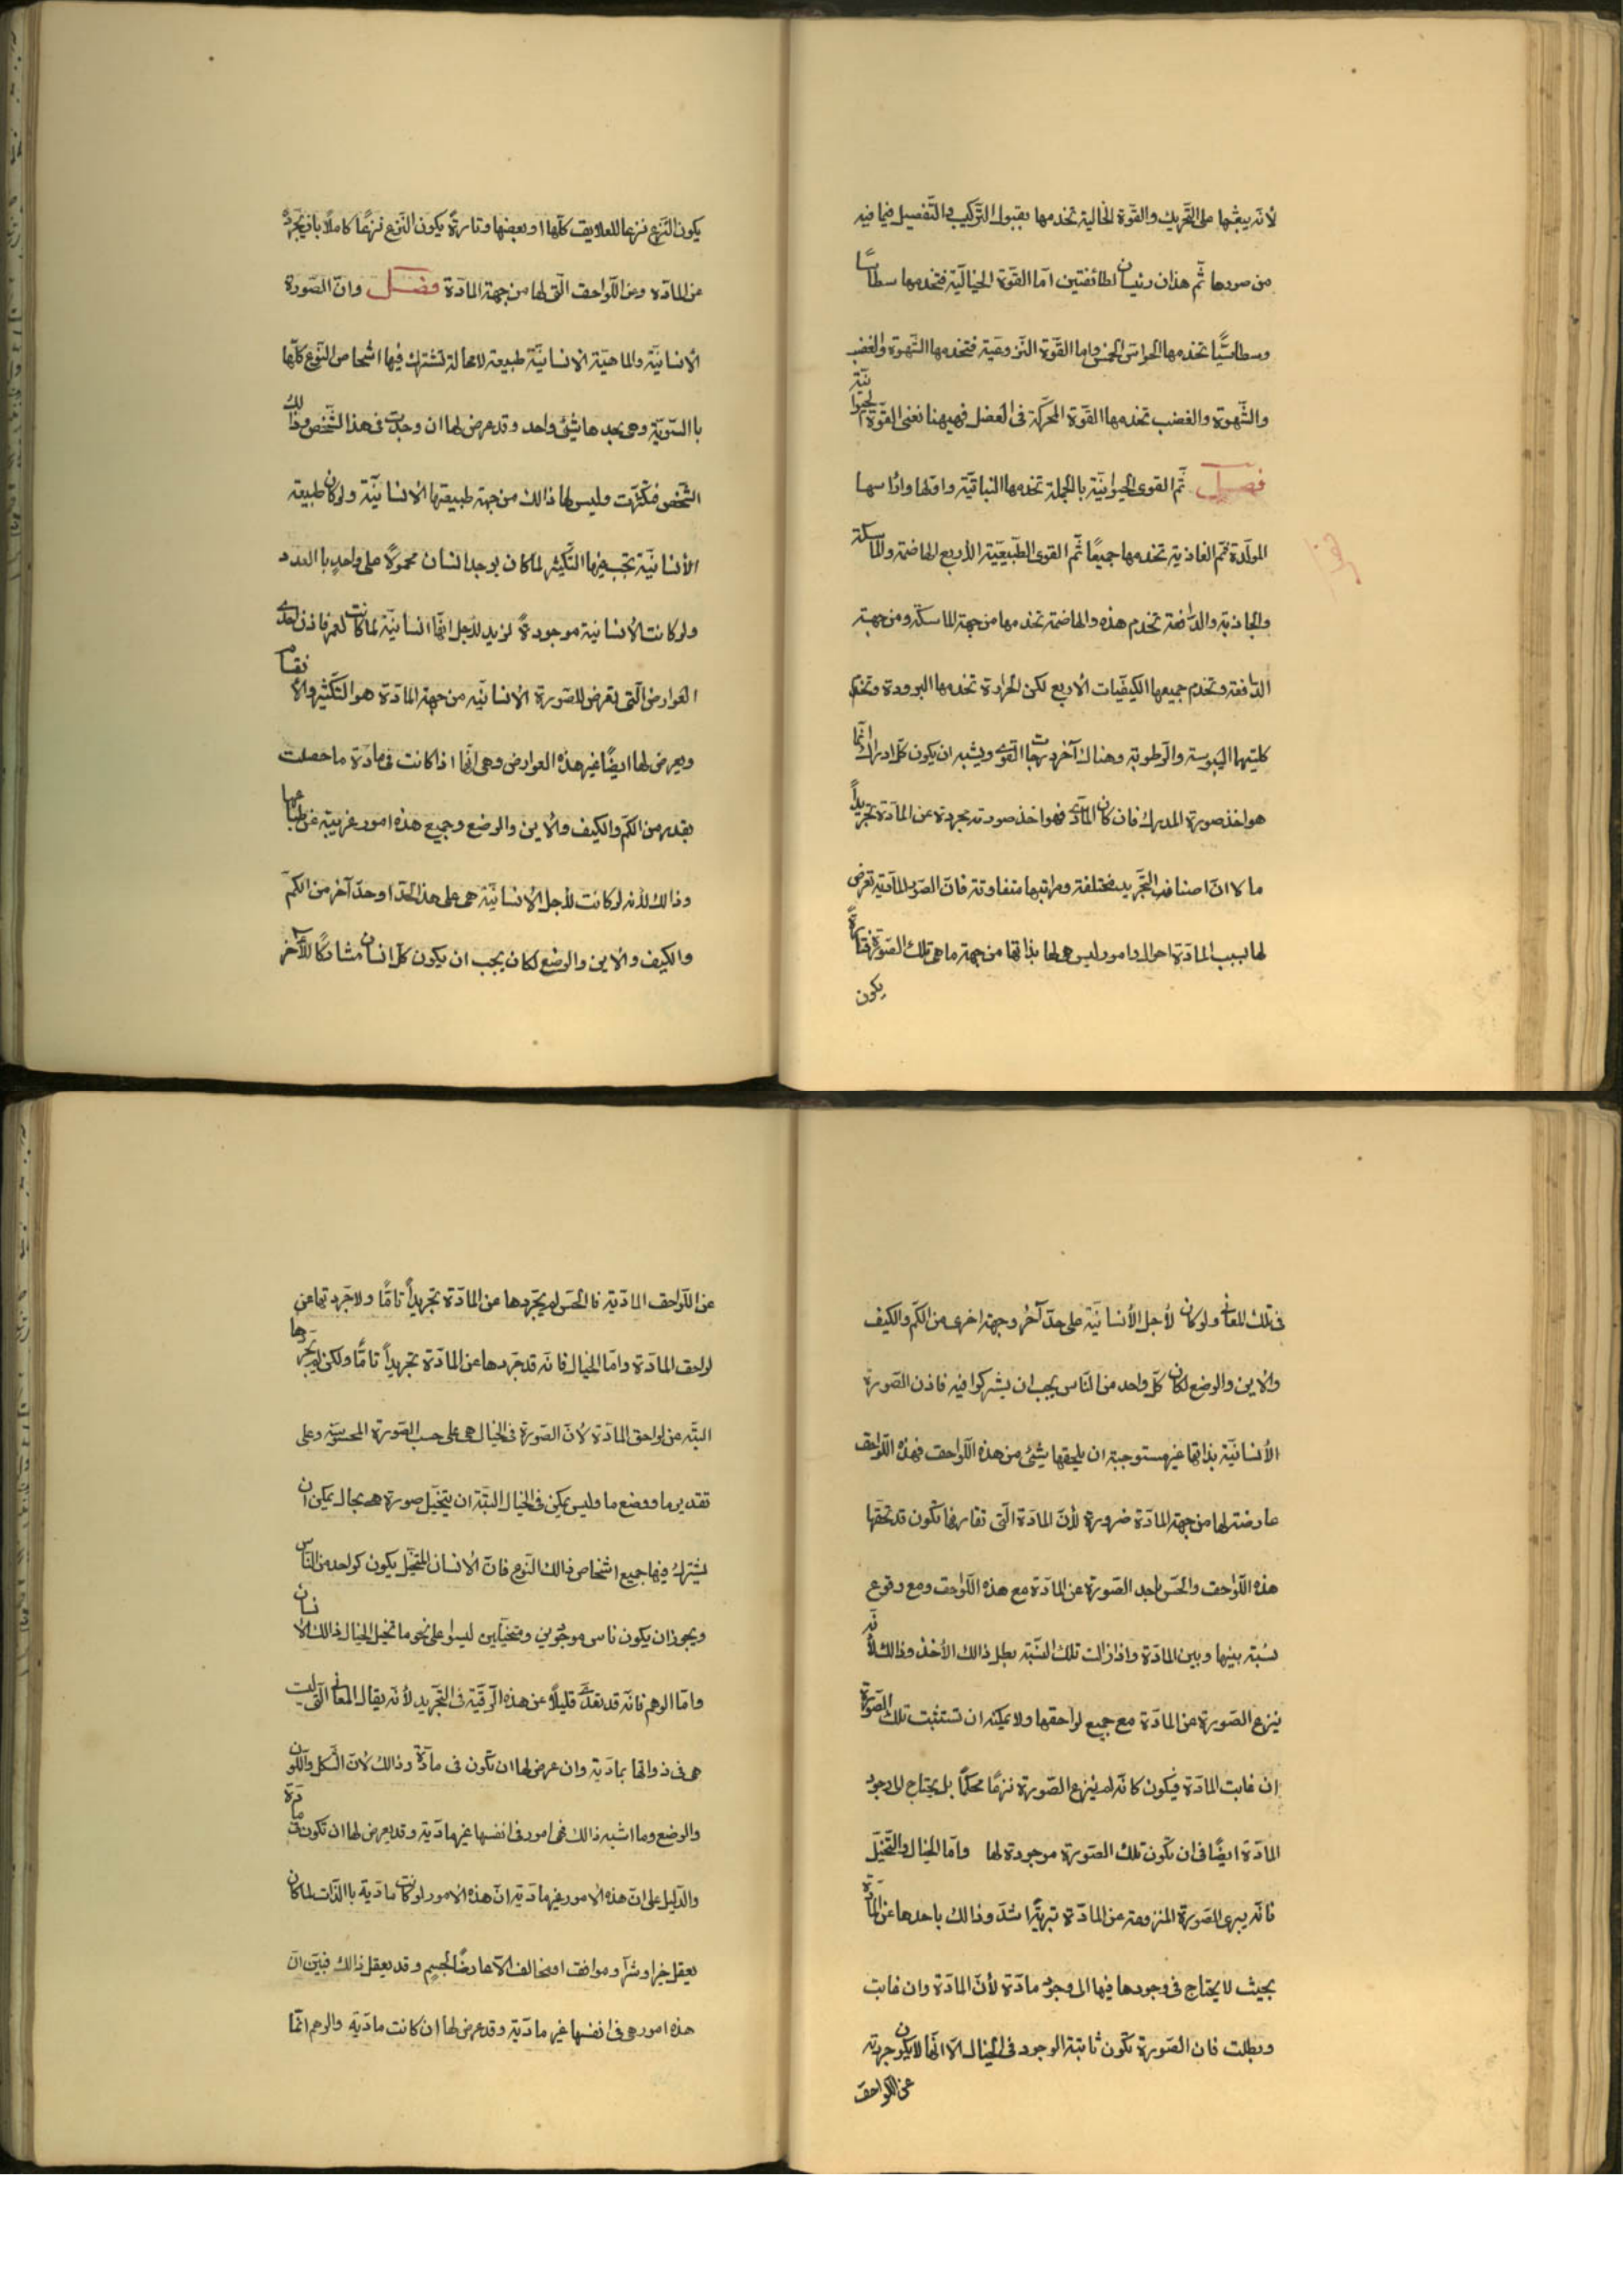 لأنه يبعثها على التحريك والقوة الخالية تخدمها بقبول التركيب والتفصيل فيما فيه
من صورها ثم هذان رئيسان لطائفتين اما القوة الخيالية فتخدمها سطاسيا
وسطاسيا تخدمها الحواس الخمس واما القوة النزوعية فتخدمها الشهوة والغضب
والشهوة والغضب تخدمها القوة المحركة فى العضل فههنا نعنى القوة الحيوانية
فصل ثم القوى الحيوانية بالجملة تخدمها النباتية واولها وارأسها
المولدة ثم الغاذية تخدمها جميعًا ثم القوى الطبيعية الأربع الهاضمة والماسكة
والجاذبة والدافعة تخدم هذه والهاضمة تخدمها من جهة الماسكة ومن جهة
الدافعة وتخدم جميعها الكيفيات الأربع لكن الحرارة تخدمها البرودة وتخدم
كليتهما اليبوسة والرطوبة وهناك آخر درجات القوى ويشبه ان يكون كل ادراك انما
هو اخذ صورة المدرك فان كان المادى فهو اخذ صورته مجردة عن المادة تجريداً
ما لا ان اصناف التجريد مختلفة ومراتبها متفاوتة فان الصور المادية تعرض
لها بسبب المادة احوال وامور ليس هى لها بذاتها من جهة ما هى تلك الصورة فتارةً
يكون
يكون النزع نزعا للعلايق كلها او بعضها وتارةً يكون النزع نزعًا كاملًا بان يجرد
عن المادة وعن اللواحق التى لها من جهة المادة فصل وان الصورة
الانسانية والماهية الانسانية طبيعة لا محالة تشترك فيها اشخاص النوع كلها
باالسوية وهى بحدها شئ واحد وقد عرض لها ان وجدت فى هذا الشخص وذالك
الشخص فتكثرت وليس لها ذالك من جهة طبيعتها الانسانية ولو كان طبيعة
الأنسانية تجب فيها التكثر لما كان يوجد انسان محمولًا على واحدٍ باالعدد
ولو كانت الأنسانية موجودةً لزيد لأجل انها انسانية لما كانت لعمر فاذن احدى
العوارض التى تعرض للصورة الانسانية من جهة المادة هو التكثر والأنقسام
ويعرض لها ايضًا غير هذه العوارض وهى انها اذا كانت فى مادة ما حصلت
بقدر من الكم والكيف والأين والوضع وجميع هذه امور غريبة عن طباعها
وذالك لأنه لو كانت لأجل الأنسانية هى على هذا الحد او حد آخر من الكم
والكيف والأين والوضع لكان يجب ان يكون كل انسان مشاركًا للآخر
فى تلك المعانى ولو كان لأجل الأنسانية على حد آخر وجهة اخرى من الكم والكيف
والاين والوضع لكان كل واحد من الناس يجب ان يشركوا فيه فاذن الصورة
الأنسانية بذاتها غير مستوجبة ان يلحقها شئ من هذه اللواحق فهذه اللواحق
عارضة لها من جهة المادة ضرورة لأن المادة التى تقارنها تكون قد تحقها
هذه اللواحق والحس ياخذ الصورة عن المادة مع هذه اللواحق ومع وقوع
نسبة بينها وبين المادة واذا زالت تلك النسبة بطل ذالك الأخذ وذالك لأنه
ينزع الصورة عن المادة مع جميع لواحقها ولا يمكنه ان تستثبت تلك الصورة
ان غابت المادة فيكون كانه لم ينزع الصورة نزعًا محكمًا بل يحتاج الى وجود
المادة ايضًا فى ان تكون تلك الصورة موجودة لها واما الخيال والتخيل
فانه يبرى الصورة المنزوعة عن المادة تبريةً اشد وذالك باخذها عن المادة
بحيث لا يحتاج فى وجودها فيها الى وجود مادة لأن المادة وان غابت
وبطلت فان الصورة تكون ثابتة الوجود فى الخيال الا انها لا يكون مجردة
عن اللواحق
عن اللواحق المادية فالحس لم يجردها عن المادة تجريداً تامًا ولا جردتها عن
لواحق المادة واما الخيال فانه قد جردها عن المادة تجريداً تامًا ولكن لم يجردها
البتة عن لواحق المادة لأن الصورة فى الخيال هى على حسب الصورة المحسوسة وعلى
تقدير ما ووضع ما وليس يمكن فى الخيال البتة ان يتخيل صورة هى بحال يمكن ان
يشترك فيها جميع اشخاص ذالك النوع فان الانسان المتخيل يكون كواحد من الناس
ويجوز ان يكون ناس موجودين ومتخيلين ليسوا على نحو ما تخيل الخيال ذالك الأنسان
واما الوهم فانه قد تعدى قليلًا عن هذه المرتبة فى التجريد لأنه يقال المعانى التى ليست
هى فى ذواتها بمادية وان عرض لها ان تكون فى مادة وذالك لان الشكل واللون
والوضع وما اشبه ذالك فهى امور فى انفسها غير مادية وقد يعرض لها ان تكون فى مادة
والدليل على ان هذه الأمور غير مادية ان هذه الأمور لو كانت مادية باالذات لما كان
يعقل خيرا وشرا وموافق او مخالف الا عارضًا لجسم وقد يعقل ذالك فبين ان
هذه امور هى فى انفسها غير مادية وقد عرض لها ان كانت مادية والوهم انما